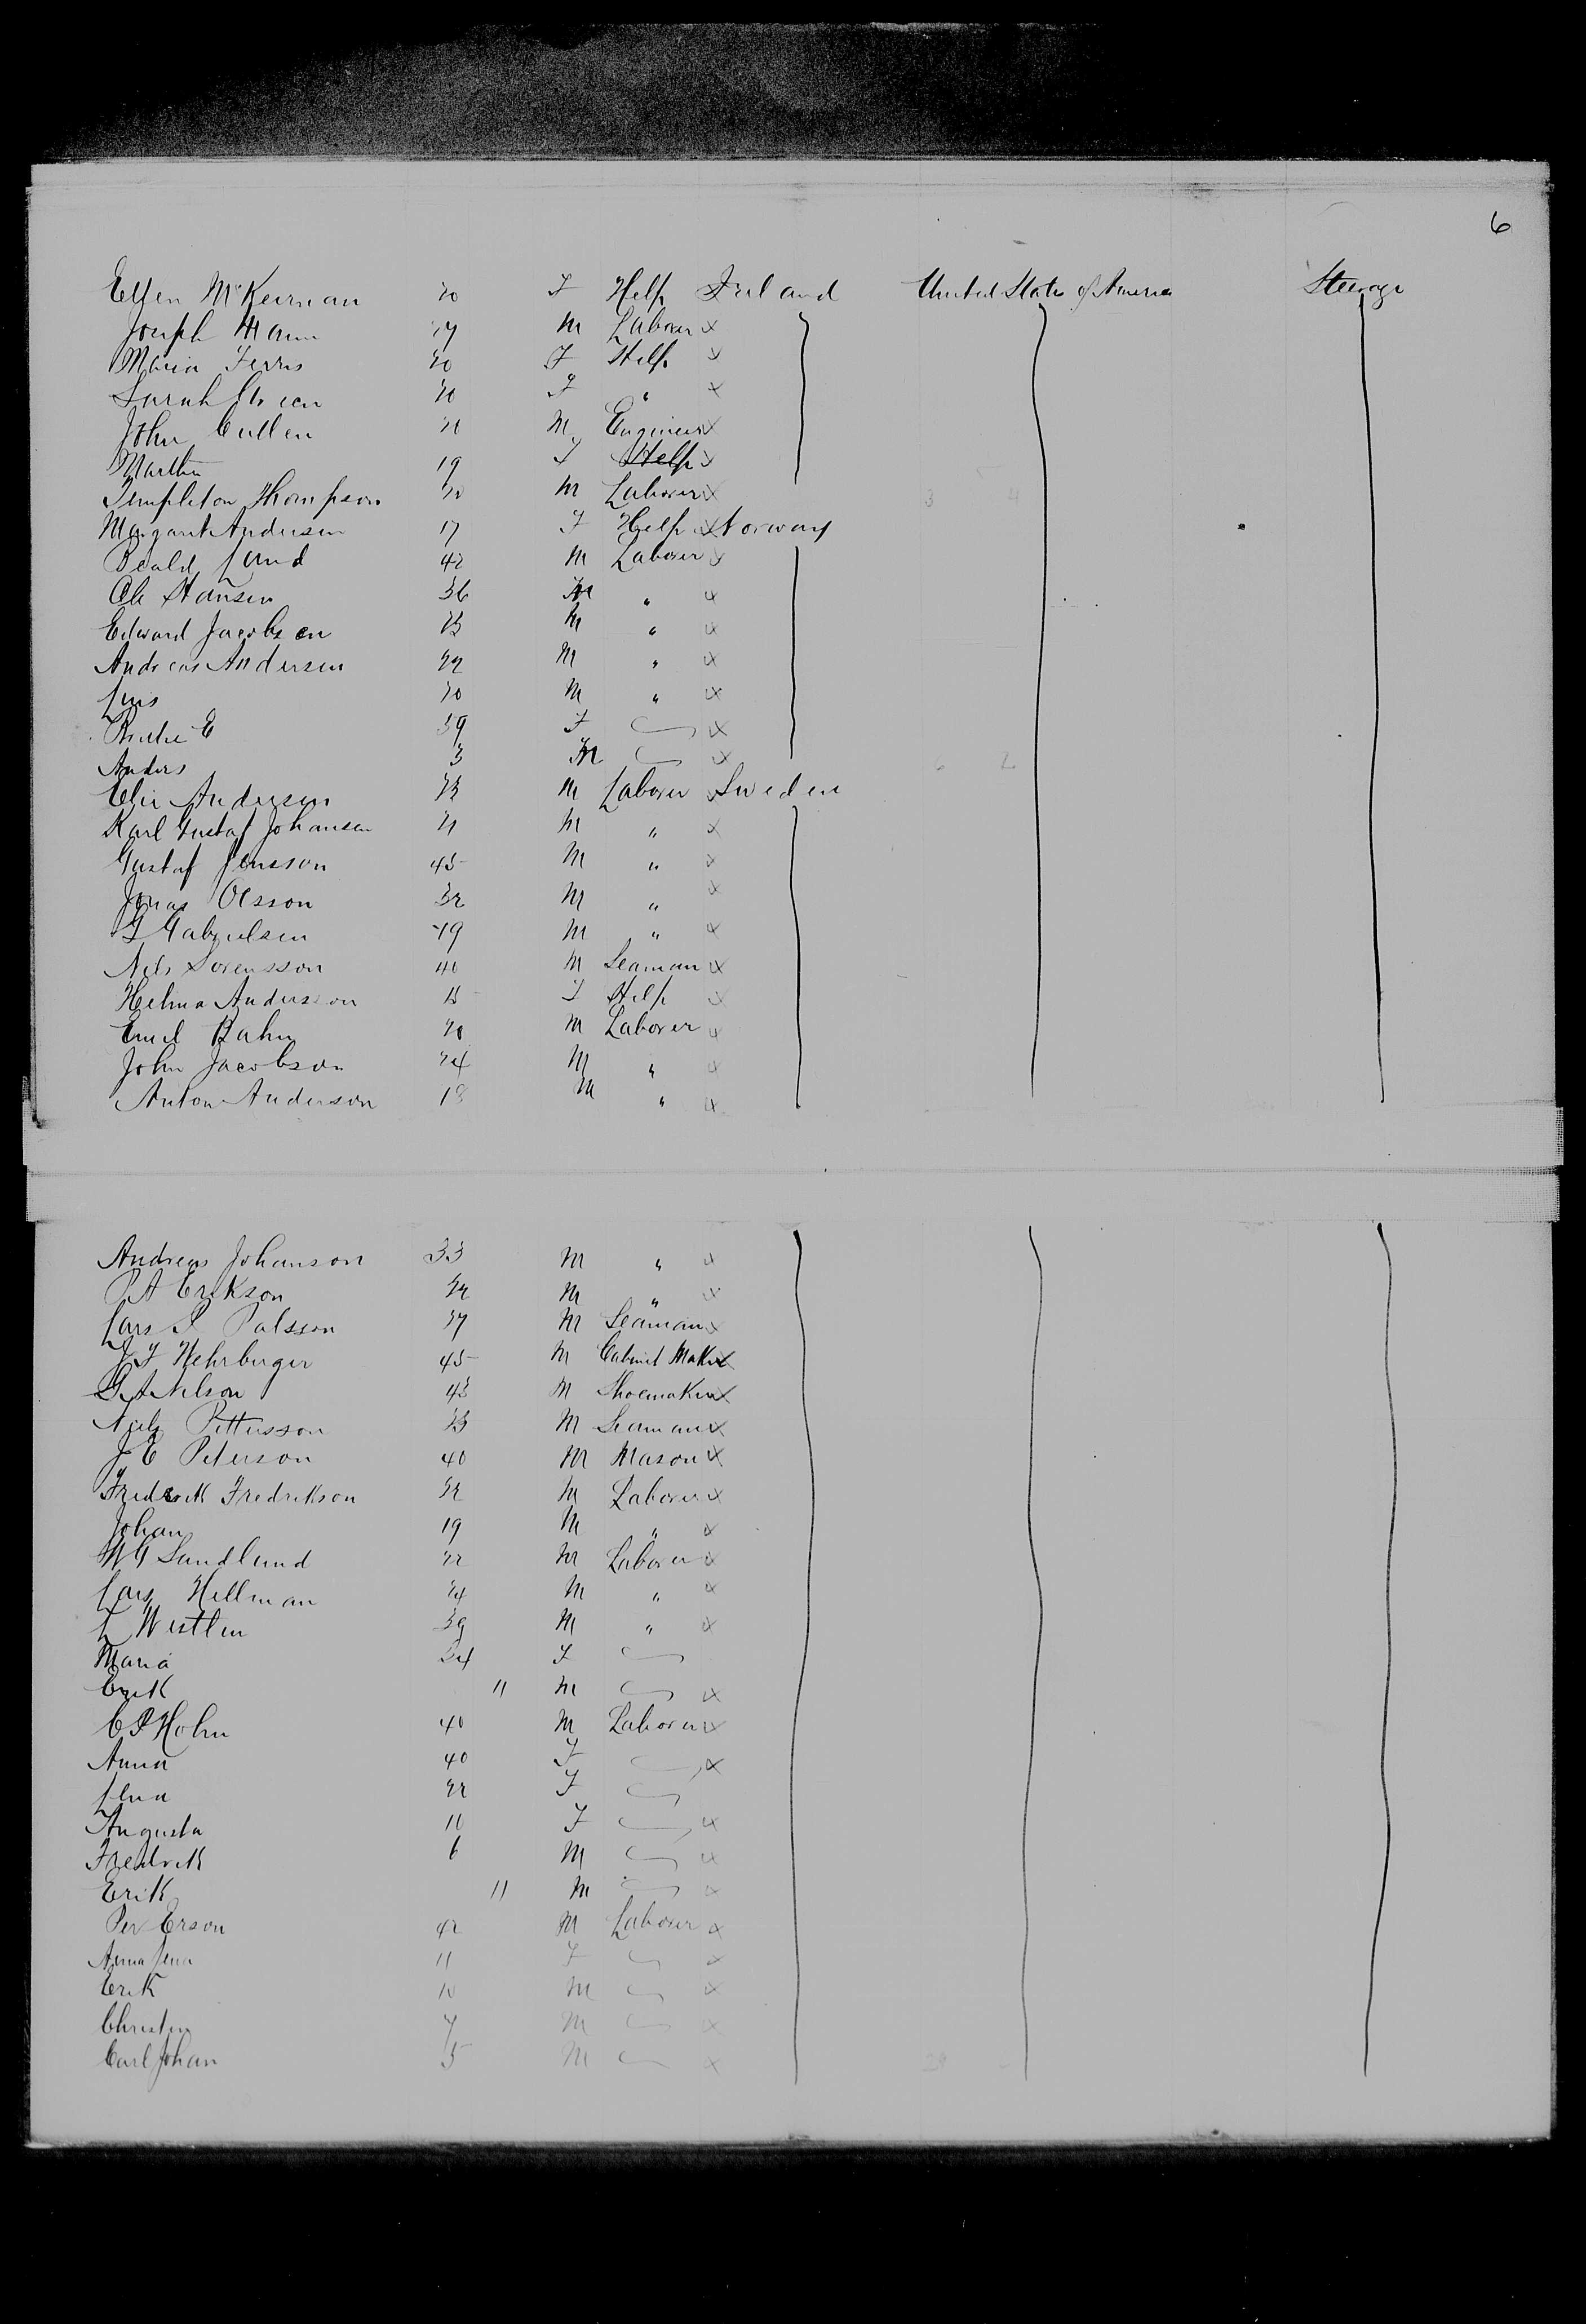 6
Ellen McKeirnan 20 F Help Ireland United State of America Steerage
Joseph Mann 27 M Laborer x
Maria Ferris 20 F Help x
Sarah 20 F " x
John Cullen 21 M Engineer x
Martha 19 F Help x
Templeton Thompson 20 M Laborer x
Margaret Andersen 17 F Help x Norway
Lund 42 M Laborer x
Ole Hansen 36 M " x
Edward Jacobsen 23 M " x
Andreas Andersen 22 M " x
Lars 20 M " x
E 39 F x
Anders 3 M x
Andersen 23 M Laborer x Sweden
Karl Gustaf Johansen 21 M " x
Gustaf Jensson 45 M " x
Jonas Olsson 32 M " x
Gabrielsen 19 M " x
Nils Sorensson 40 M Seaman x
Helma Andersson 18 F Help x
Emil Bahn 20 M Laborer x
John Jacobson 24 M " x
Anton Anderson 18 M " x
Andreas Johanson 33 M " x
P A Erikson 22 M " x
Lars P Palsson 27 M Seaman x
J F Wehrberger 45 M Cabinet Maker x
G A Nelson 43 M Shoemaker x
Niels Pettersson 23 M Seaman x
J E Peterson 40 M Mason x
Frederik Fredrikson 22 M Laborer x
Johan 19 M " x
W G Sundlund 22 M Laborer x
Lars Hellman 24 M " x
L Westlin 39 M " x
Maria 34 F
Erik 11 M x
C P Holm 40 M Laborer x
Anna 40 F x
Lena 22 F
Augusta 10 F x
Fredrik 6 M x
Erik 11 M x
Per Erson 42 M Laborer x
Anna Lena 11 F x
Erik 10 M x
Christin 7 M x
Carl Johan 5 M x